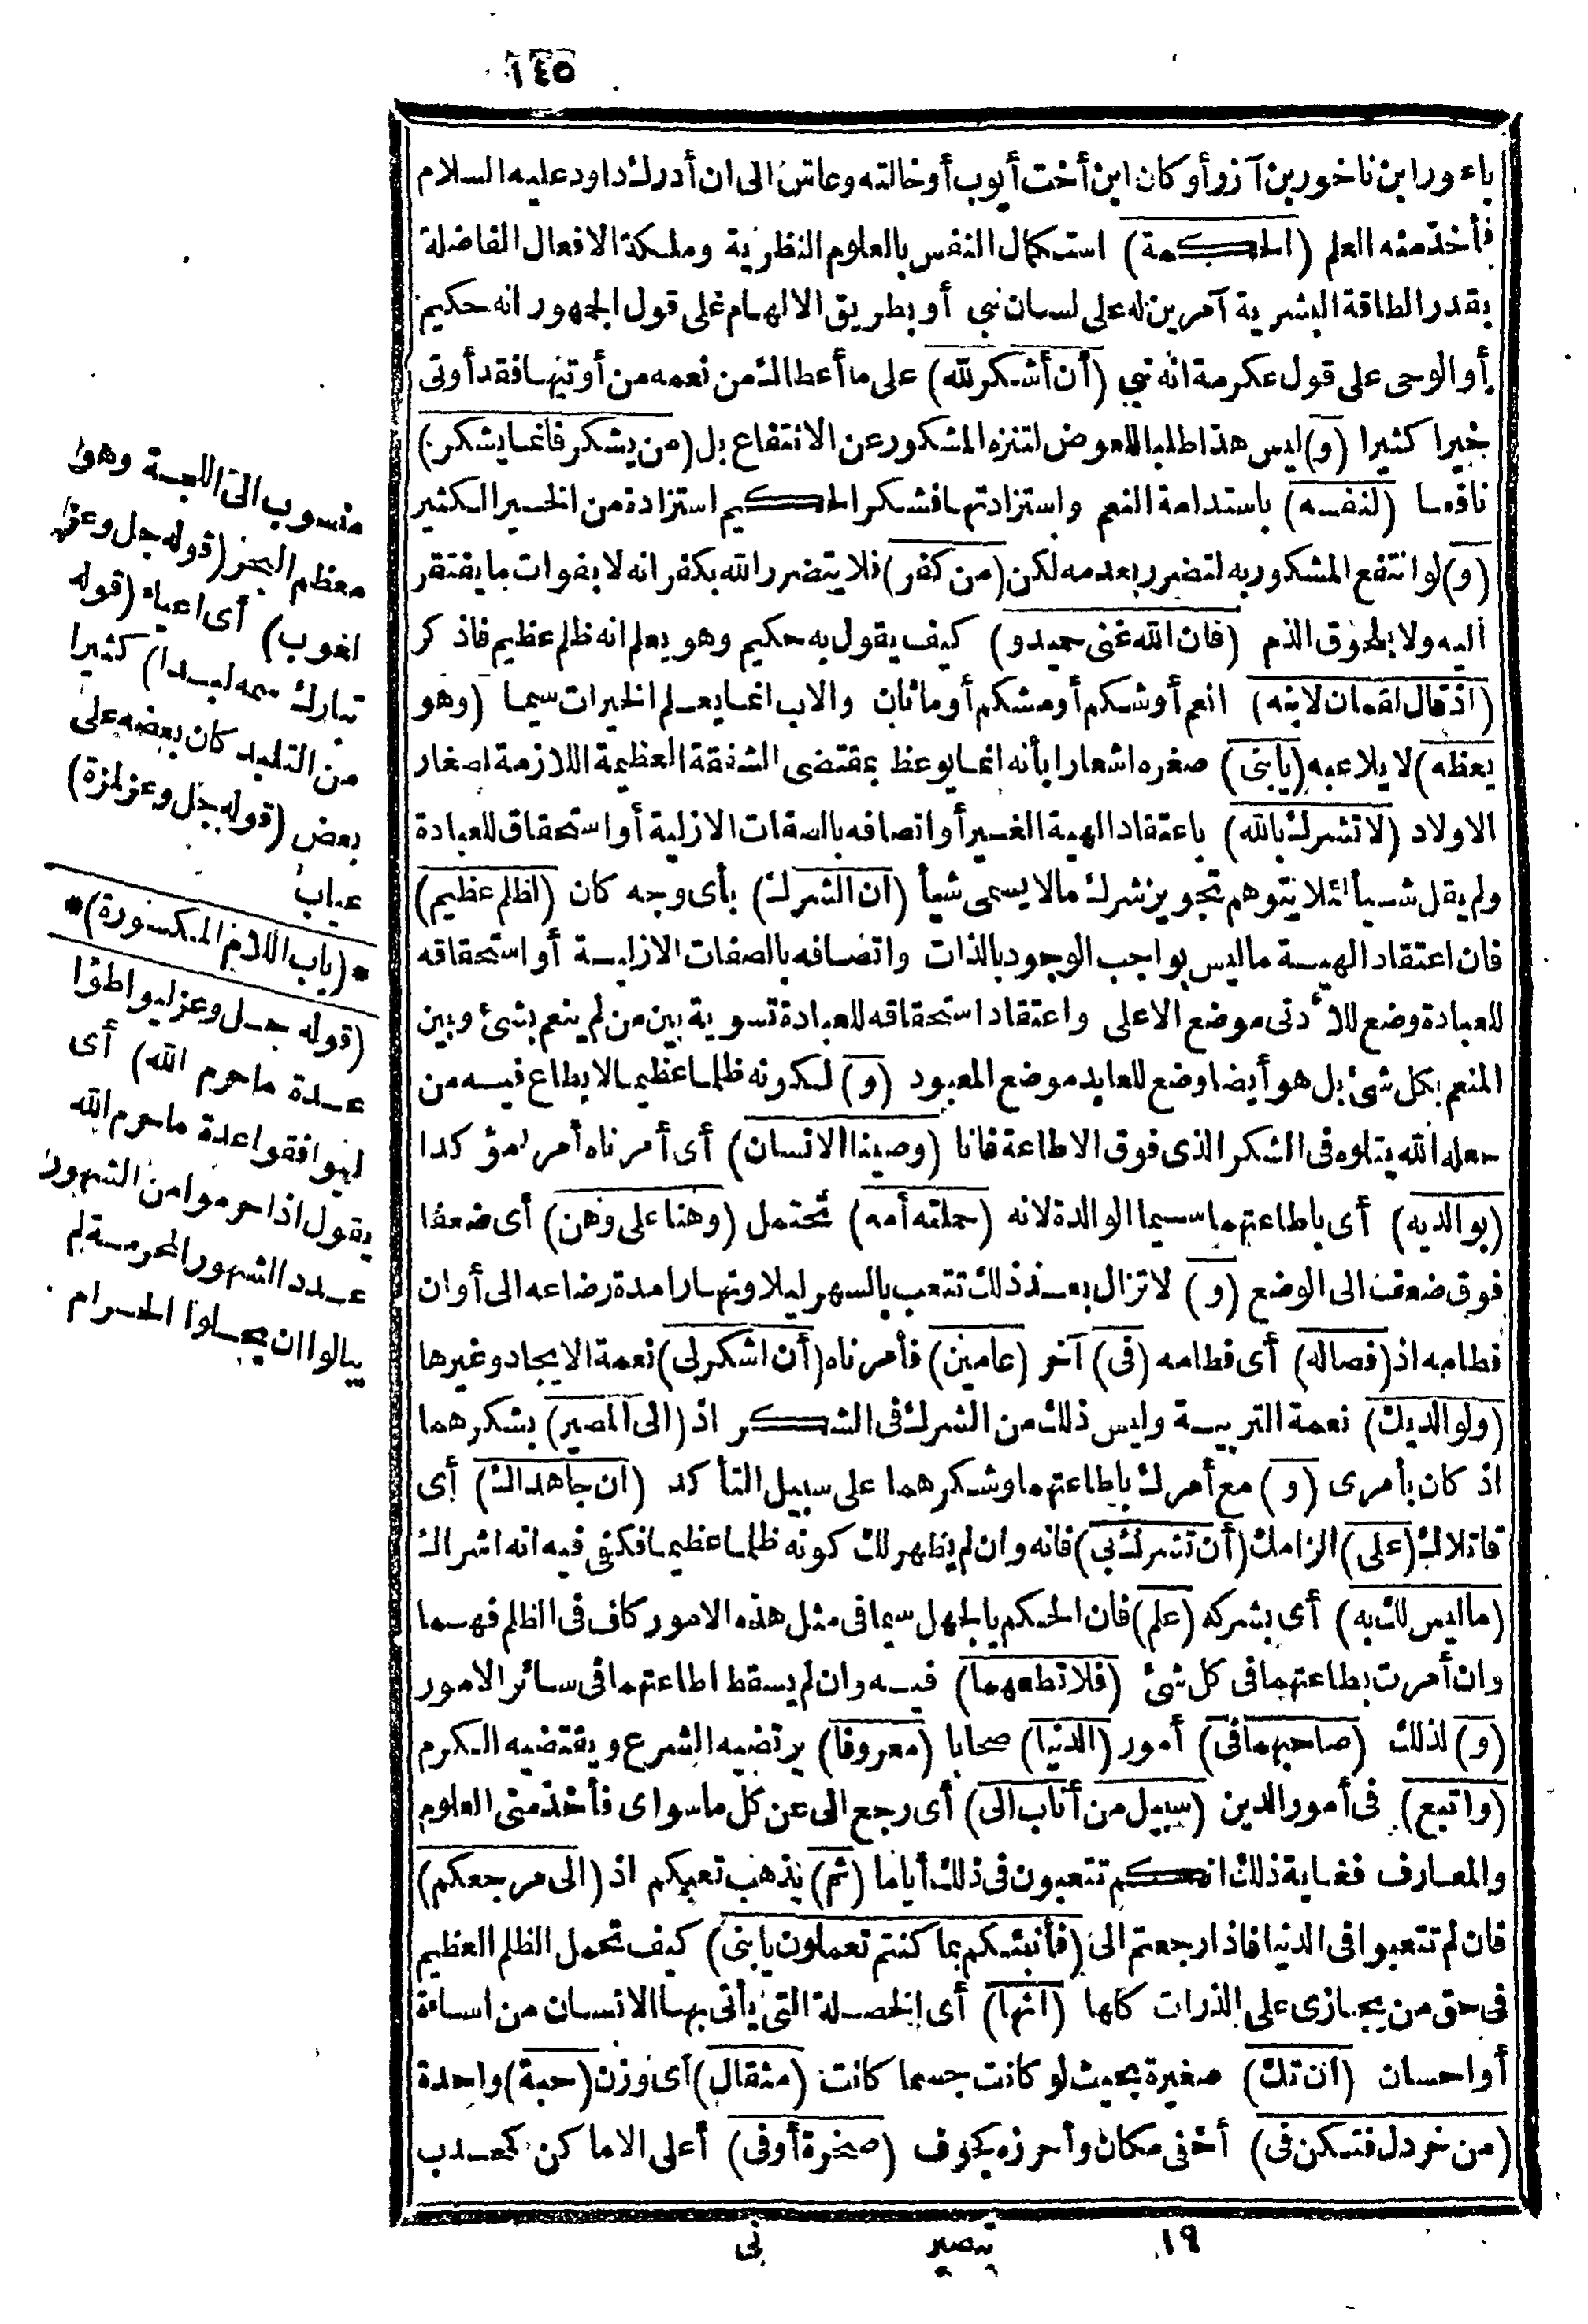 ١٤٥
باعورابن ناخور بن آزر أو كان ابن أخت أيوب أو خالته وعاش الى ان أدرك داود عليه السلام
فأخذ منه العلم (الحكمة) استكمال النفس بالعلوم النظرية وملكة الافعال الفاضلة
بقدر الطاقة البشرية آمرين له على لسان نبي أو بطريق الالهام على قول الجمهور انه حكيم
أو الوحى على قول عكرمة انه نبي (أن أشكر لله) على ما أعطاك من نعمه من أوتيها فقد أوتى
خيرا كثيرا (و) ليس هذا طلبا للعوض لتنزه المشكور عن الانتفاع بل (من يشكر فانما يشكر)
نافعا (لنفسه) باستدامة النعم واستزادتها فشكر الحكيم استزادة من الخير الكثير
(و) لو انتفع المشكور به لتضرر بعدمه لكن (من كفر) فلا يتضرر الله بكفرانه لا بفوات ما يفتقر
اليه ولا بلحوق الذم (فان الله غنى حميد و) كيف يقول به حكيم وهو يعلم انه ظلم عظيم فاذ كر
(اذ قال لقمان لابنه) انعم أو شكم أو مشكم أو ماثان والاب انما يعلم الخيرات سيما (وهو
يعظه) لا يلاعبه (يابنى) صغره اشعارا بأنه انما يوعظ بمقتضى الشفقة العظيمة اللازمة لصغار
الاولاد (لا تشرك بالله) باعتقاد الهية الغير أو اتصافه بالصفات الازلية أو استحقاق للعبادة
ولم يقل شيأ لئلا يتوهم تجويز شرك مالا يسمى شيأ (ان الشرك) بأى وجه كان (لظلم عظيم)
فان اعتقاد الهية ما ليس بواجب الوجود بالذات واتصافه بالصفات الازلية أو استحقاقه
للعبادة وضع للأدنى موضع الاعلى واعتقاد استحقاقه للعبادة تسوية بين من لم ينعم بشئ وبين
المنعم بكل شئ بل هو أيضا وضع للعابد موضع المعبود (و) لكونه ظلما عظيما لا يطاع فيه من
جعله الله يتلوه فى الشكر الذى فوق الاطاعة فانا (وصينا الانسان) أى أمرناه أمر امؤ كدا
(بوالديه) أى باطاعتهما سيما الوالدة لانه (حملته أمه) تحتمل (وهنا على وهن) أى ضعفا
فوق ضعف الى الوضع (و) لا تزال بعد ذلك تتعب بالسهر ليلا ونهارا مدة رضاعه الى أوان
فطامه اذ (فصاله) أى فطامه (فى) آخر (عامين) فأمرناه (أن اشكر لى) نعمة الايجاد وغيرها
(ولوالديك) نعمة التربية وليس ذلك من الشرك فى الشكر اذ (الى المصير) بشكرهما
اذ كان بأمرى (و) مع أمرك باطاعتهما وشكرهما على سبيل التأ كد (ان جاهداك) أى
قاتلاك (على) الزامك (أن تشرك بى) فانه وان لم يظهر لك كونه ظلما عظيما فكفى فيه انه اشراك
(ما ليس لك به) أى بشركه (علم) فان الحكم بالجهل سيما فى مثل هذه الامور كاف فى الظلم فهما
وان أمرت بطاعتهما فى كل شئ (فلا تطعهما) فيه وان لم يسقط اطاعتهما فى سائر الامور
(و) لذلك (صاحبهما فى) أمور (الدنيا) صحابا (معروفا) يرتضيه الشرع ويقتضيه الكرم
(واتبع) فى أمور الدين (سبيل من أناب الى) أى رجع الى عن كل ما سواى فأخذ منى العلوم
والمعارف فغاية ذلك انكم تتعبون فى ذلك أياما (ثم) يذهب تعبكم اذ (الى مرجعكم)
فان لم تتعبوا فى الدنيا فاذا رجعتم الى (فأنبئكم بما كنتم تعملون يابنى) كيف تحمل الظلم العظيم
فى حق من يجازى على الذرات كلها (انها) أى الخصلة التى يأتى بها الانسان من اساءة
أو احسان (ان تك) صغيرة بحيث لو كانت جسما كانت (مثقال) أى وزن (حبة) واحدة
(من خردل فتكن فى) أخفى مكان وأحرزه كجوف (صخرة أو فى) أعلى الاما كن كمحدب
١٩ تبصير نى
منسوب الى اللجة وهو
معظم البحر (قوله جل وعز
لغوب) أى اعياء (قوله
تبارك اسمه لبدا) كثيرا
من التلبد كان بعضه على
بعض (قوله جل وعز لمزة)
عياب
*(باب اللام المكسورة)*
(قوله جل وعز ليواطؤا
عدة ما حرم الله) أى
ليوافقوا عدة ما حرم الله
يقول اذا حرموا من الشهور
عدد الشهور المحرمة لم
يبالوا ان يحلوا الحرام